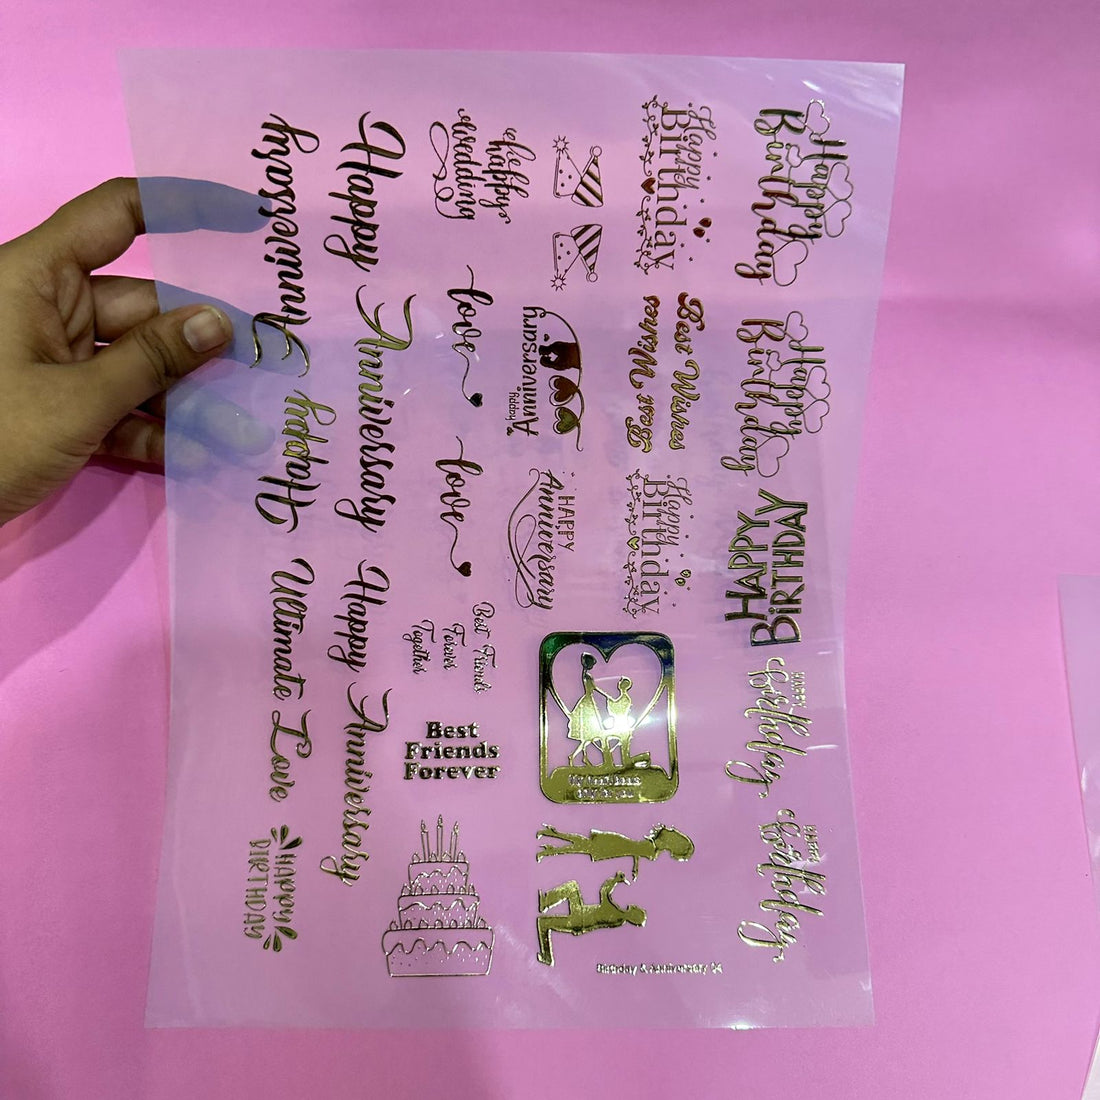 Happy
Birthday
Happy
Birthday
HAPPY
BiRTHDAY
HAPPY
Birthday
HAPPY
Birthday
Happy
Birthday
Best Wishes
Best Wishes
Happy
Birthday
Happy
Anniversary
HAPPY
Anniversary
Birthday & Anniversary
be
happy
wedding
love
love
Best Friends
Forever
Together
Best
Friends
Forever
Happy Anniversary
Happy Anniversary
Happy Anniversary
Ultimate Love
HAPPY
BIRTHDAY